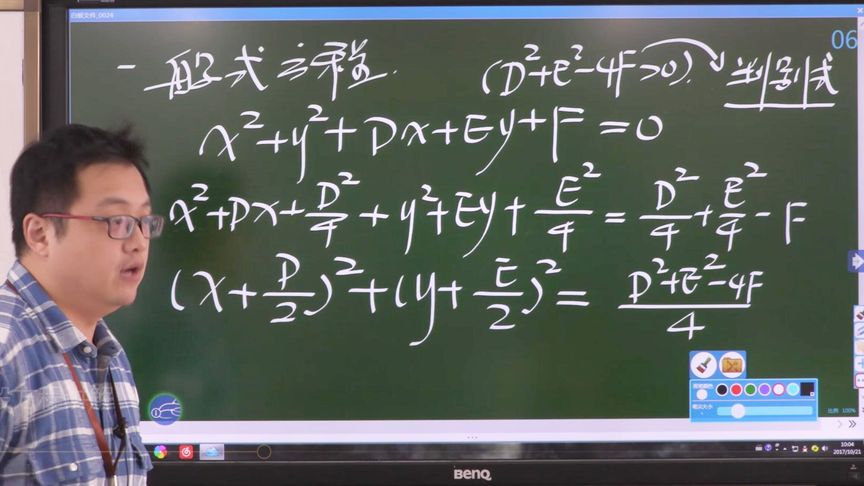 白板文件_0024
06
一般式方程. (D²+E²-4F>0). 判别式
x²+y²+Dx+Ey+F=0
x²+Dx+D²/4+y²+Ey+E²/4=D²/4+E²/4-F
(x+D/2)²+(y+E/2)²=(D²+E²-4F)/4
笔迹颜色
笔迹大小
比例 100%
10:04
2017/10/21
BenQ